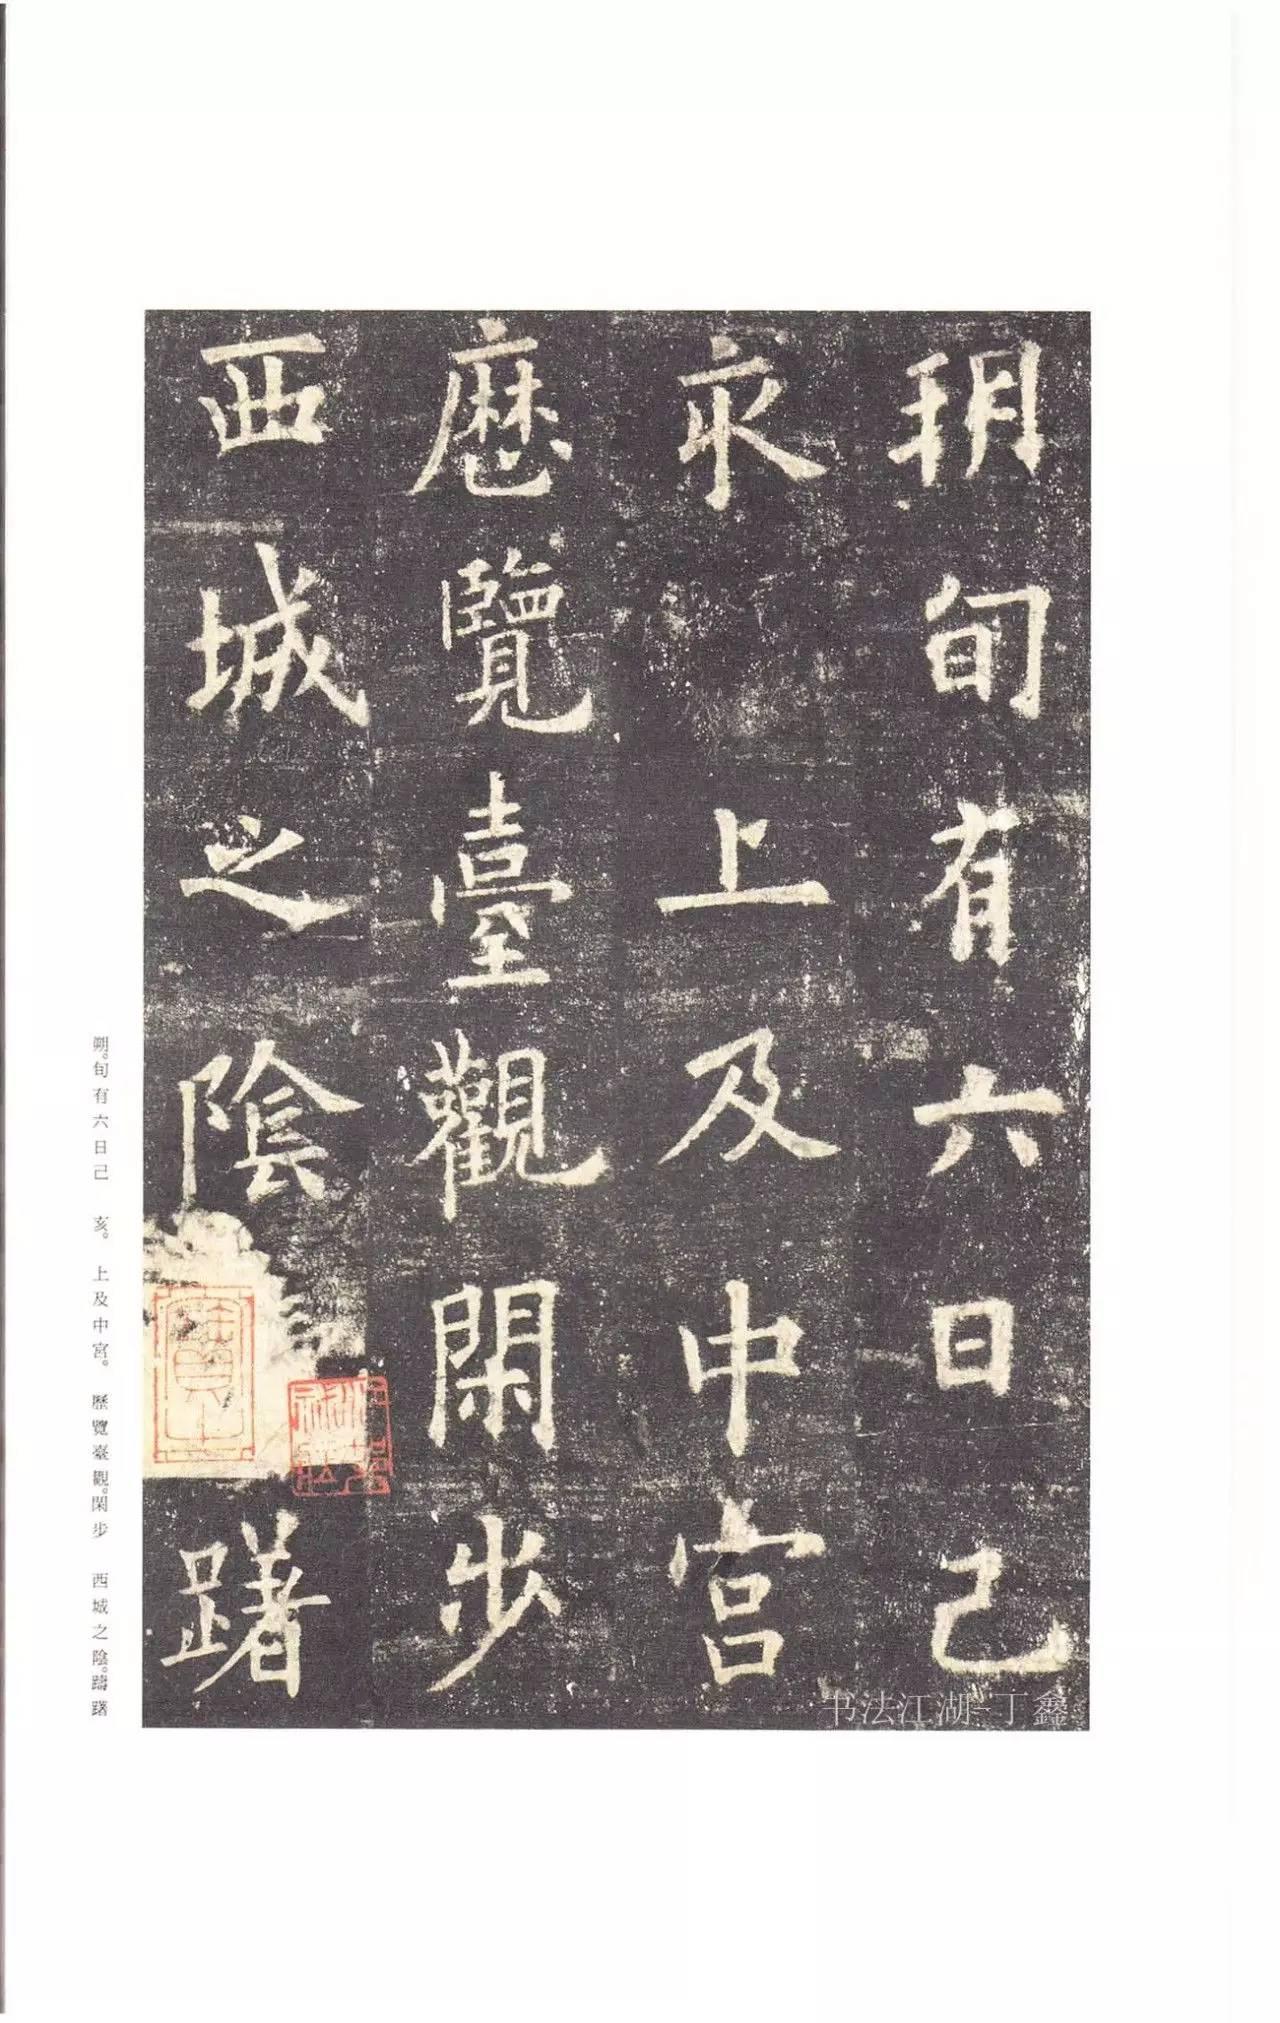 朔旬有六日己
亥上及中宮
歷覽臺觀閑步
西城之陰躇
朔。旬有六日己　亥。　上及中宮。　歷覽臺觀。閑步　西城之陰。躊躇
书法江湖-丁鑫